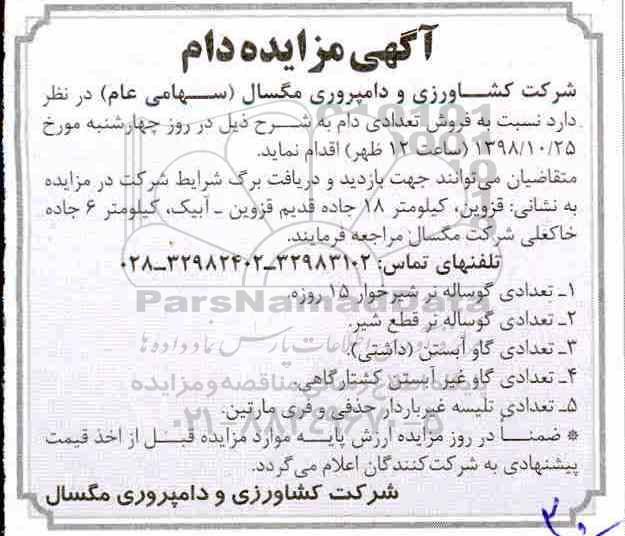 آگهی مزایده دام
شرکت کشاورزی و دامپروری مگسال (سهامی عام) در نظر
دارد نسبت به فروش تعدادی دام به شرح ذیل در روز چهارشنبه مورخ
۱۳۹۸/۱۰/۲۵ (ساعت ۱۲ ظهر) اقدام نماید.
متقاضیان می‌توانند جهت بازدید و دریافت برگ شرایط شرکت در مزایده
به نشانی: قزوین، کیلومتر ۱۸ جاده قدیم قزوین ـ آبیک، کیلومتر ۶ جاده
خاکعلی شرکت مگسال مراجعه فرمایند.
تلفنهای تماس: ۳۲۹۸۳۱۰۲ـ۳۲۹۸۲۴۰۲ـ۰۲۸
۱ـ تعدادی گوساله نر شیرخوار ۱۵ روزه.
ParsNamadData
۲ـ تعدادی گوساله نر قطع شیر.
۳ـ تعدادی گاو آبستن (داشتی).
۴ـ تعدادی گاو غیر آبستن کشتارگاهی.
۵ـ تعدادی تلیسه غیرباردار حذفی و فری مارتین.
۰۲۱-۸۸۳۴۹۶۷۰-۵
* ضمناً در روز مزایده ارزش پایه موارد مزایده قبل از اخذ قیمت
پیشنهادی به شرکت‌کنندگان اعلام می‌گردد.
شرکت کشاورزی و دامپروری مگسال